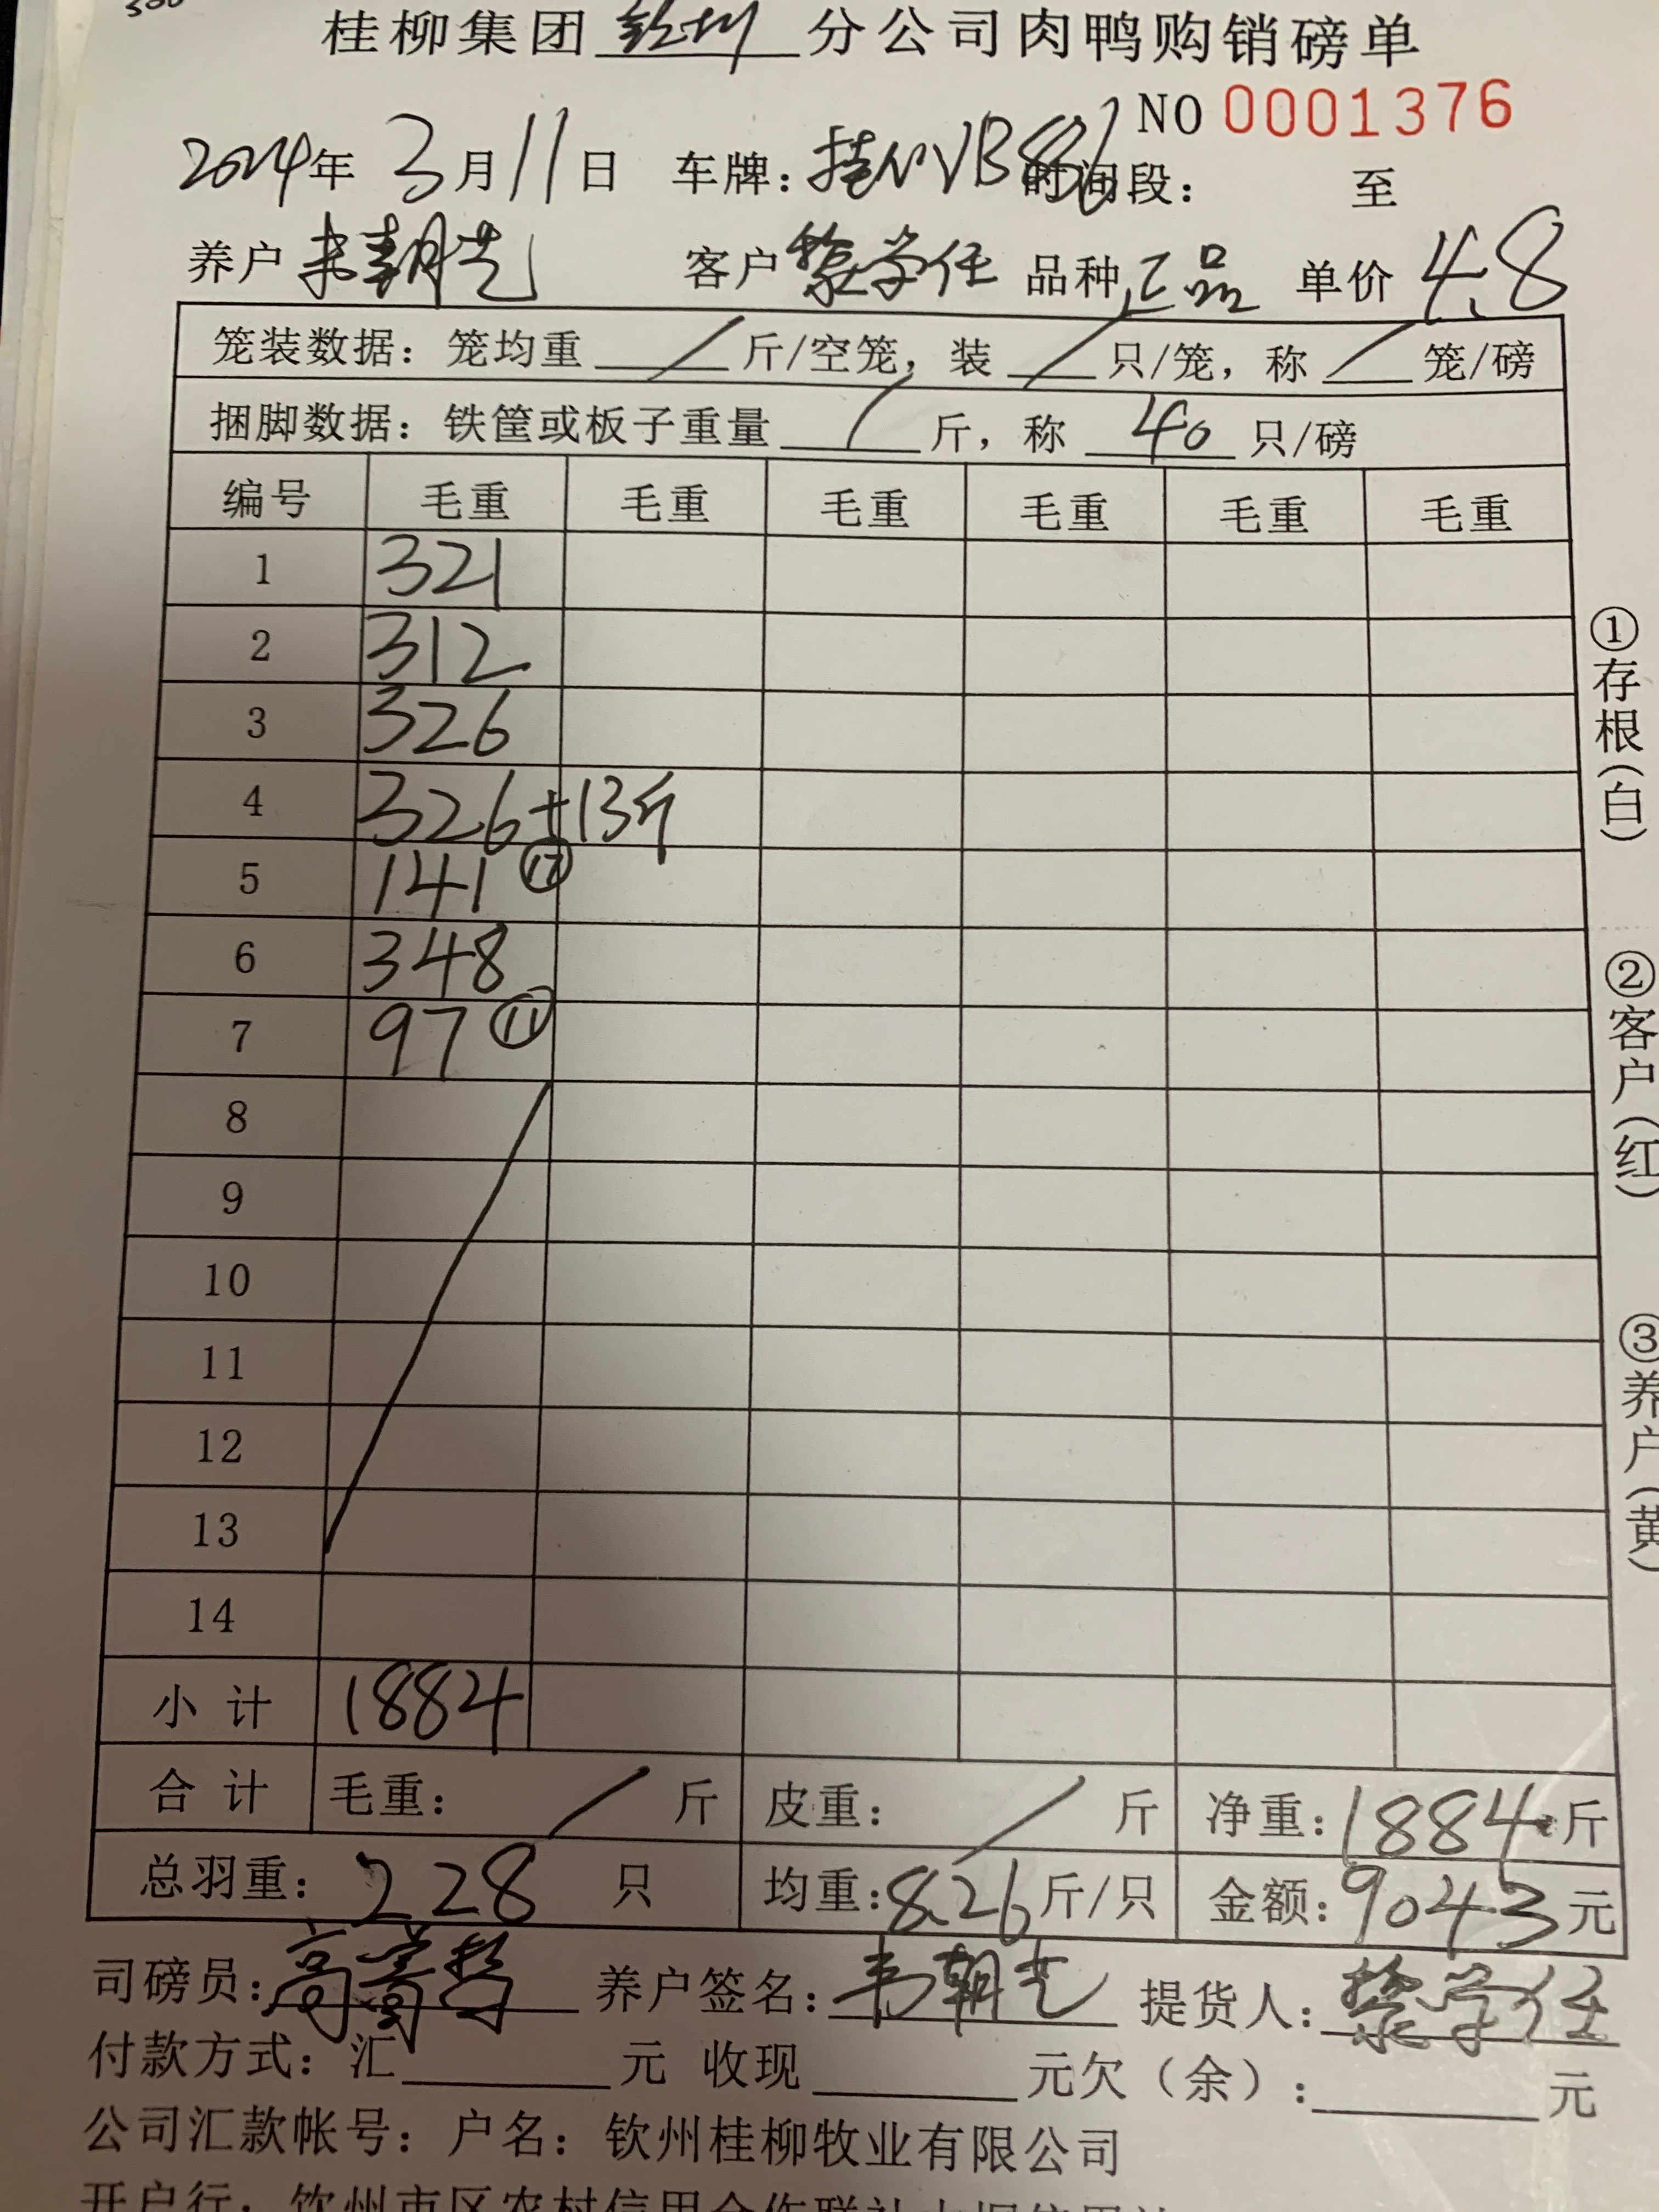 桂柳集团钦州分公司肉鸭购销磅单
NO 0001376
2024年 3月11日 车牌:桂NVB886 时间段: 至
养户 韦朝先 客户 黎学任 品种 正品 单价 4.8
笼装数据:笼均重 / 斤/空笼,装 / 只/笼,称 / 笼/磅
捆脚数据:铁筐或板子重量 / 斤,称 40 只/磅
编号 毛重 毛重 毛重 毛重 毛重 毛重
1 321
2 312
3 326
4 326+13斤
5 141 ⑰
6 348
7 97 ⑪
8
9
10
11
12
13
14
小计 1884
合计 毛重: / 斤 皮重: / 斤 净重:1884斤
总羽重:228 只 均重:8.26斤/只 金额:9043元
司磅员: 养户签名:韦朝先 提货人:黎学任
付款方式:汇 元 收现 元欠(余): 元
公司汇款帐号:户名:钦州桂柳牧业有限公司
开户行:钦州市区农村信用合作联社大垌信用社
①存根(白)
②客户(红)
③养户(黄)